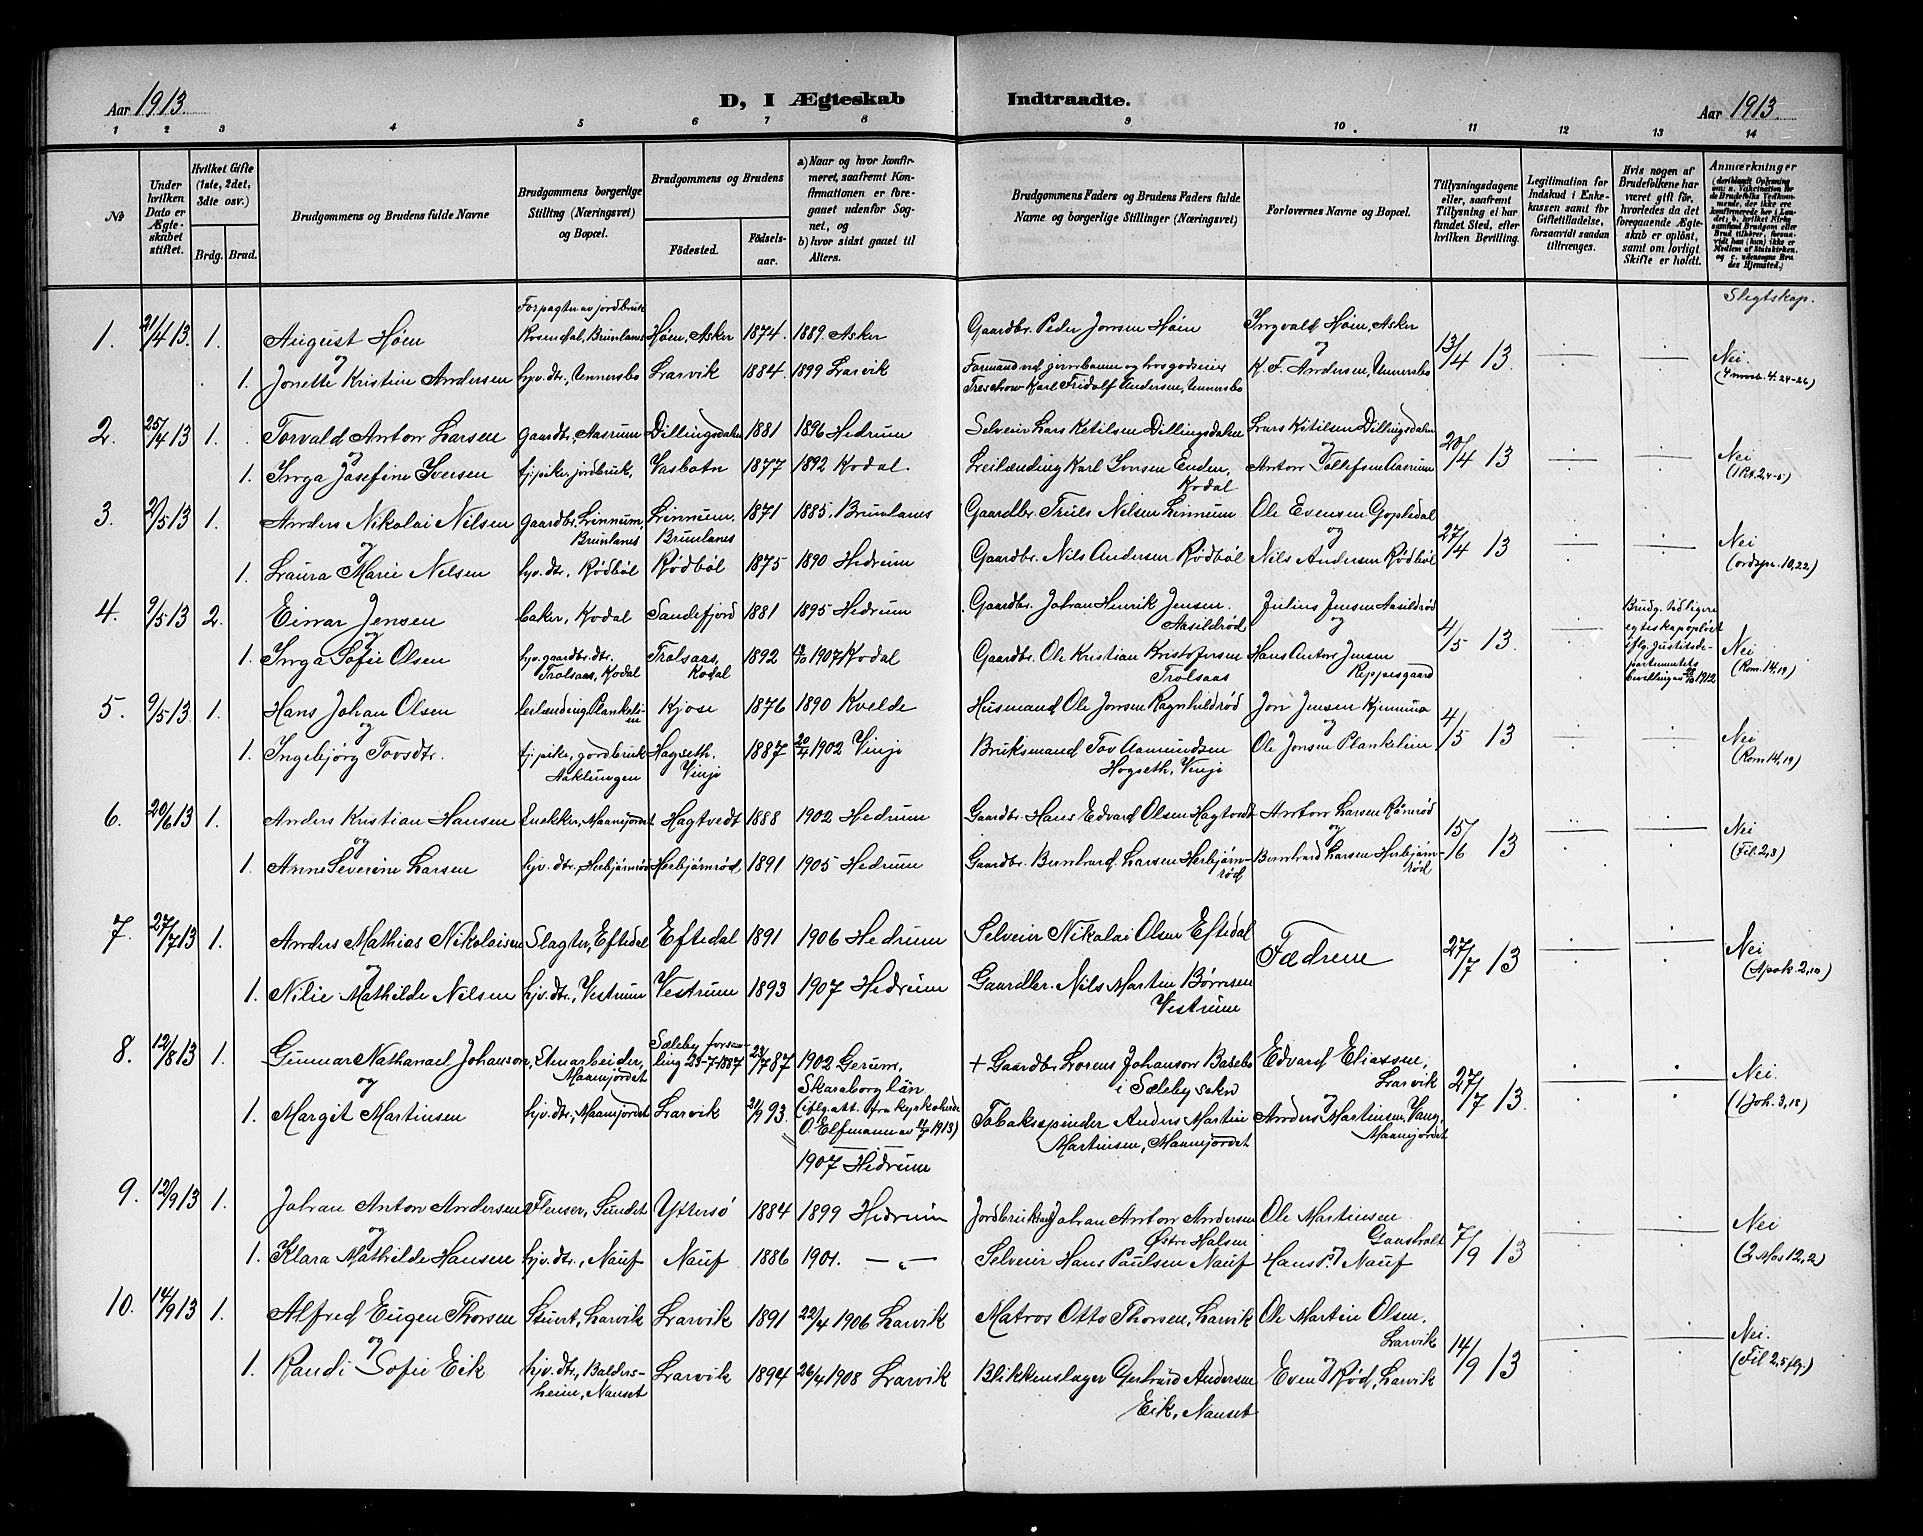 Aar 1913.
D, I Ægteskab Indtraadte.
Aar 1913
1 2 3 4 5 6 7 8 9 10. 11 12 13 14
No
Under hvilken Dato er Ægteskabet stiftet.
Hvilket Gifte (1ste, 2det, 3die osv.)
Brdg. Brud.
Brudgommens og Brudens fulde Navne
Brudgommens borgerlige Stilling (Næringsvei) og Bopæl.
Brudgommens og Brudens
Födested.
Födselsaar.
a) Naar og hvor konfirmeret, saafremt Konfirmationen er foregaaet udenfor Sognet, og
b) hvor sidst gaaet til Alters.
Brudgommens Faders og Brudens Faders fulde Navne og borgerlige Stillinger (Næringsvei)
Forlovernes Navne og Bopæl.
Tillysningsdagene eller, saafremt Tillysning ei har fundet Sted, efter hvilken Bevilling.
Legitimation for Indskud i Enkekassen samt for Giftetilladelse, forsaavidt saadan tiltrænges.
Hvis nogen af Brudefolkene har været gift för, hvorledes da det foregaaende Ægteskab er oplöst, samt om lovligt Skifte er holdt.
Anmærkninger
Slegtskap.
1. 21/4 13. 1. August Höen og Forpagter av jordbruk Rosendal, Brunlanes Höen, Asker 1874. 1889. Asker Gaardbr. Peder Jonsen Höen Ingvald Höen, Asker og 13/4 13. Nei.
1. Jonette Kristine Andersen hjv. dtr., Unnersbo Larvik 1884. 1899 Larvik Formand ved jernbanen og hos godseier Treschow Karl Fridolf Andersen, Unnersbo K. F. Andersen, Unnersbo (4 mos. 4. 24-26)
2. 25/4 13 1. Torvald Anton Larsen og gaardbr., Aasrum Dillingsdalen 1881 1896 Hedrum Selveier Lars Ketilsen Dillingsdalen Lars Ketilsen Dillingsdalen og 20/4 13 Nei
1. Inga Josefine Iversen tj. pike, jordbruk, Vasbotn 1877 1892 Kodal. Leilænding Karl Iversen Enden, Kodal Anton Tollefsen Aasrum (1 Pet. 2,4-5)
3. 2/5 13 1. Anders Nikolai Nilsen og gaardbr. Linnum, Brunlanes Linnum, Brunlanes 1871 1885. Brunlanes Gaardbr. Truls Nilsen Linnum Ole Evensen Gopledal og 27/4 13 Nei
1. Laura Marie Nilsen hjv. dtr., Rödböl Rödböl 1875 1890 Hedrum Gaardbr. Nils Andersen Rödböl Nils Andersen Rödböl (ordspr. 10,22)
4. 9/5 13 2. Einar Jensen og baker, Kodal Sandefjord 1881 1895 Hedrum Gaardbr. Johan Henrik Jensen. Aasildröd Julius Jensen Aasildröd og 4/5 13 Brudg. tidligere egteskap oplöst iflg. Justitsdepartementets bevilling av 1912 Nei
1. Inga Sofie Olsen hjv. gaardbr. dtr. Trolsaas, Kodal Trolsaas, Kodal 1892 1907 Kodal Gaardbr. Ole Kristian Kristofersen Trolsaas Hans Anton Jensen Reppesgaard (Rom. 14,19)
5. 9/5 13 1. Hans Johan Olsen og leilænding, Plankelien Kjose 1876 1890 Kvelde Husmand Ole Jonsen Ragnhildröd Jon Jensen Kjennua og 4/5 13 Nei
1. Ingebjörg Tovsdtr. tj. pike, gordbruk Aaklungen Hagseth. Vinje 1887 20/4 1902 Vinje Bruksmand Tov Aamundsen Hogseth, Vinje Ole Jonsen Plankelien (Rom 14,19)
6. 20/6 13 1. Anders Kristian Hansen og snekker, Maanejordet Hagtvedt 1888 1902 Hedrum Gaardbr. Hans Edvard Olsen Hagtvedt Anton Larsen Römröd og 15/6 13 Nei
1. Anne Severine Larsen hjv. dtr., Herbjörnröd Herbjörnröd 1891 1905 Hedrum Gaardbr. Bernhard Larsen Herbjörnröd Bernhard Larsen Herbjörnröd (Fil. 2,3)
7. 27/7 13 1. Anders Mathias Nikolaisen og Slagter, Eftedal Eftedal 1891 1906 Hedrum Selveier Nikolai Olsen Eftedal Fædrene 27/7 13 Nei
1. Nilie Mathilde Nilsen hjv. dtr., Vestrum Vestrum 1893 1907 Hedrum Gaardbr. Nils Martin Börresen Vestrum (Apok. 2,10)
8. 12/8 13 1. Gunnar Nathanael Johanson, og Stenarbeider, Maanejordet Sæleby forsamling 23-7-1887 23/7 87 1902 Gerum, Skaraborg län (iflg. att. fra kyrkoherde O. Elfmann av 1913) + Gaardbr. Lorens Johanson Backebo i Sæleby sokn Edvard Eliassen, Larvik og 27/7 13. Nei.
1. Margit Martinsen hjv. dtr., Maanejordet Larvik 21/9 93. 1907 Hedrum Tobaksspinder Anders Martin Martinsen, Maanejordet Anders Martinsen, Vang, Maanejordet (1 Joh. 3,18)
9. 12/9 13 1. Johan Anton Andersen og Flenser, Sundet Yttersö 1884 1899 Hedrum Jordbruker Johan Anton Andersen Östre Halsen Ole Martinsen Gaasholt og 7/9 13 Nei
1. Klara Mathilde Hansen hjv. dtr., Nauf Nauf 1886 1901. — „ — Selveier Hans Paulsen Nauf Hans P. Nauf (2 Mos 12,2)
10. 14/9 13 1. Alfred Eugen Thorsen og Stuert, Larvik Larvik 1891 22/4 1906 Larvik Matros Otto Thorsen, Larvik Ole Martin Olsen, Larvik og 14/9 13 Nei.
1. Randi Sofie Eik hjv. dtr., Baldersheim, Nanset Larvik 1894 26/4 1908 Larvik Blikkenslager Gerhard Andersen Eik, Nanset Even Röd, Larvik (Fil 2,5 flg.)